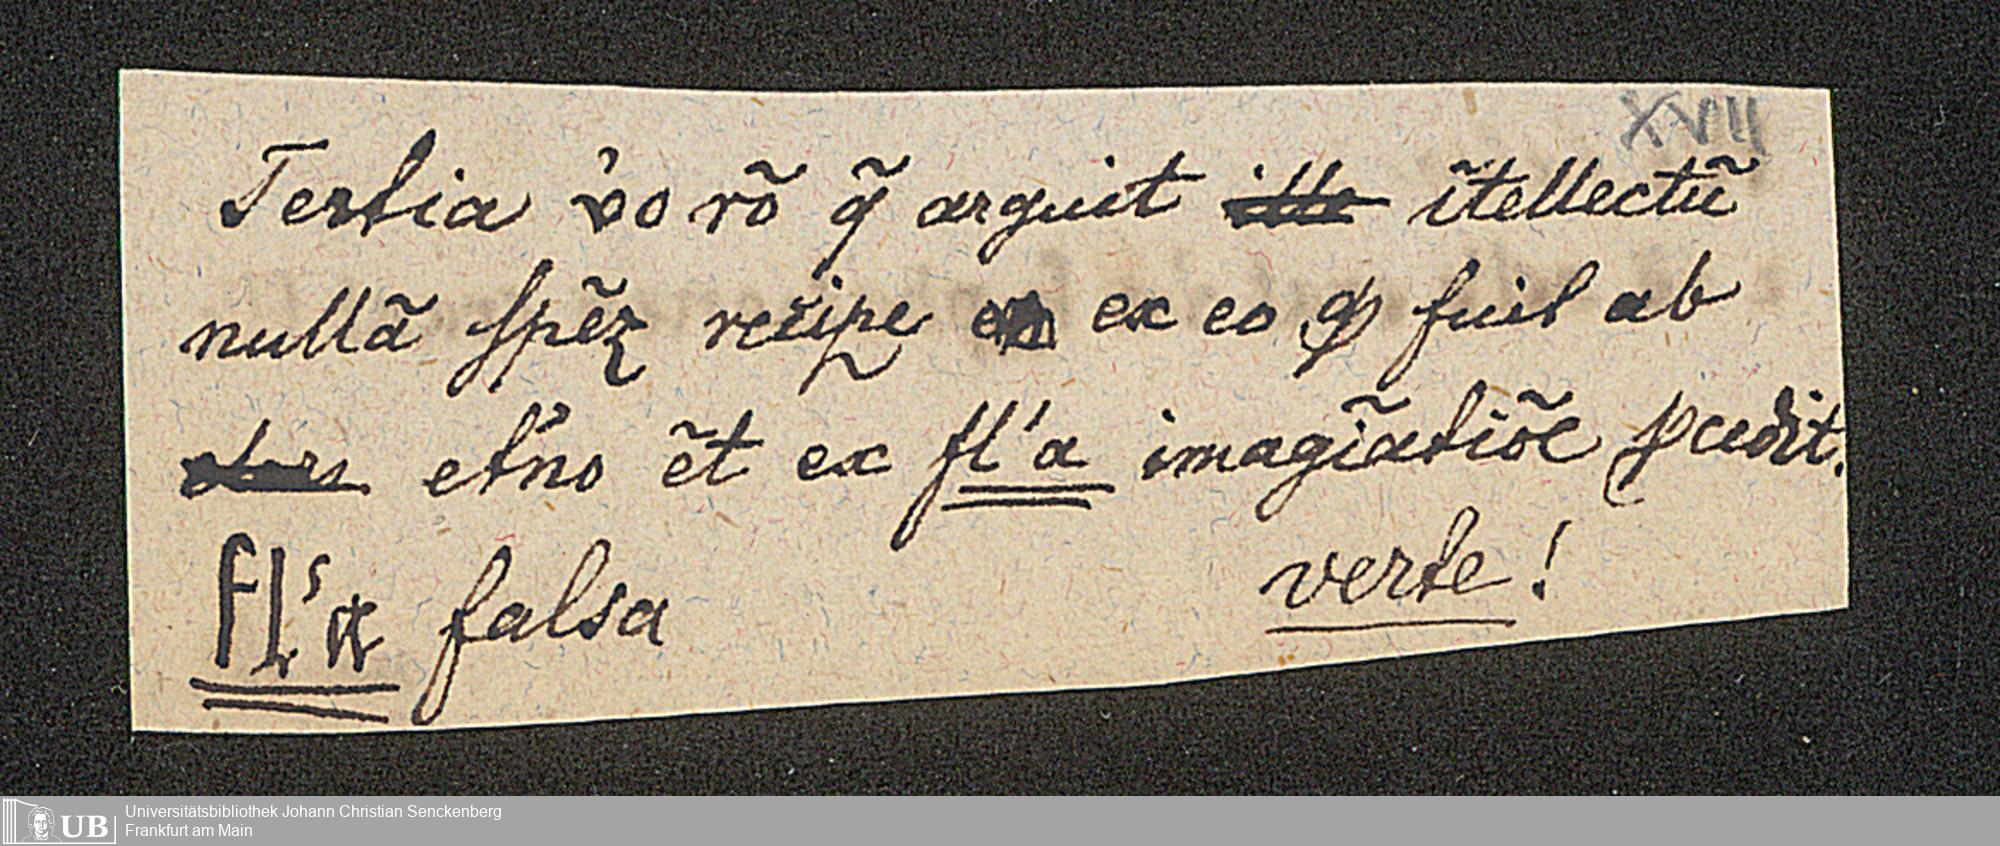 XVIII
Tertia v'o rõ q̃ arguit ĩtellectũ
nullã spẽz recipe ex eo qꝫ fuit ab
et'no ẽt ex fl'a imagĩatiõe pcedit.
fl'a falsa verte!
Universitätsbibliothek Johann Christian Senckenberg
Frankfurt am Main
UB